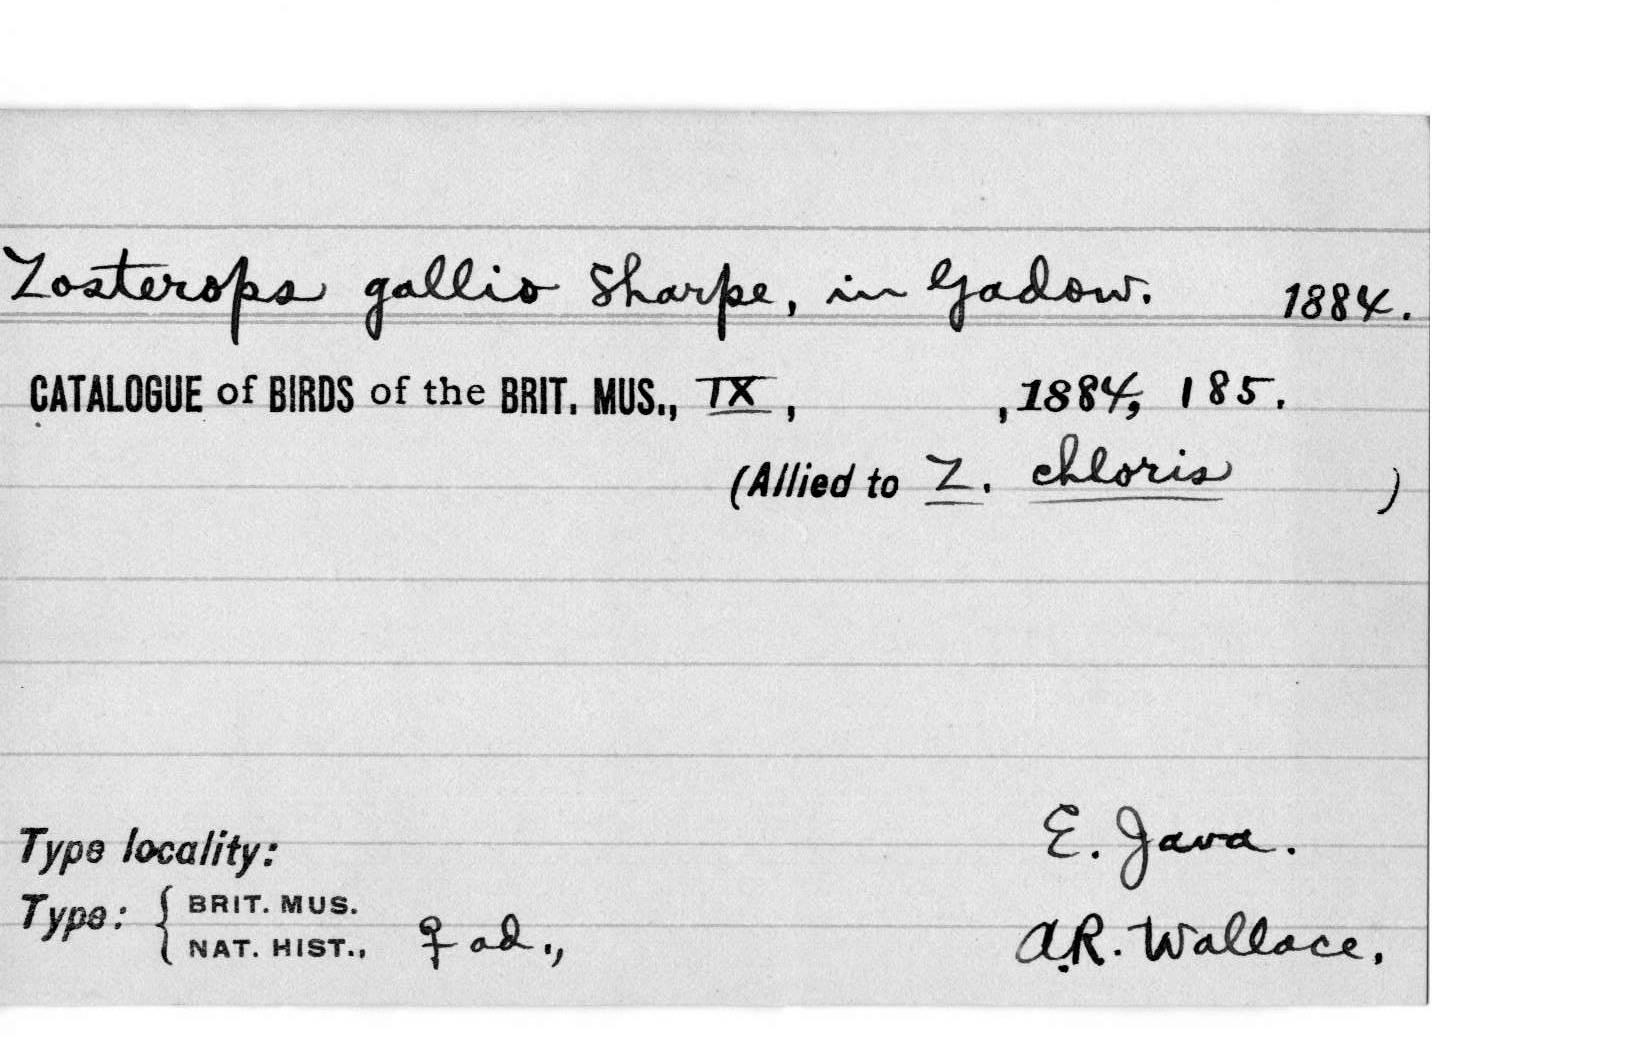 Zosterops gallio Sharpe, in Gadow. 1884.
CATALOGUE of BIRDS of the BRIT. MUS., IX, ,1884, 185.
(Allied to Z. chloris )
Type locality: E. Java.
Type: { BRIT. MUS.
NAT. HIST., ♀ ad., A.R. Wallace.